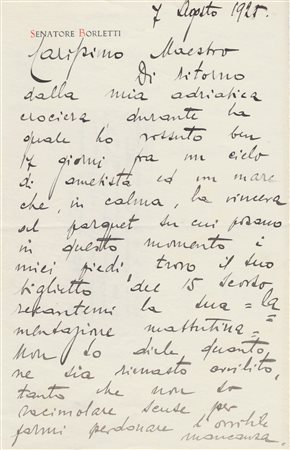 7 Agosto 1925.
SENATORE BORLETTI
Carissimo Maestro
Di ritorno
dalla mia adriatica
crociera, durante la
quale ho vissuto ben
17 giorni fra un cielo
di ametista ed un mare
che, in calma, la vinceva
sul parquet su cui posano
in questo momento i
miei piedi trovo il suo
biglietto del 15 scorso
recantemi la sua = la
mentazione mattutina =
Non so dirle quanto
ne sia rimasto avvilito,
tanto che non so
racimolare scuse per
farmi perdonare l'orribile
mancanza.